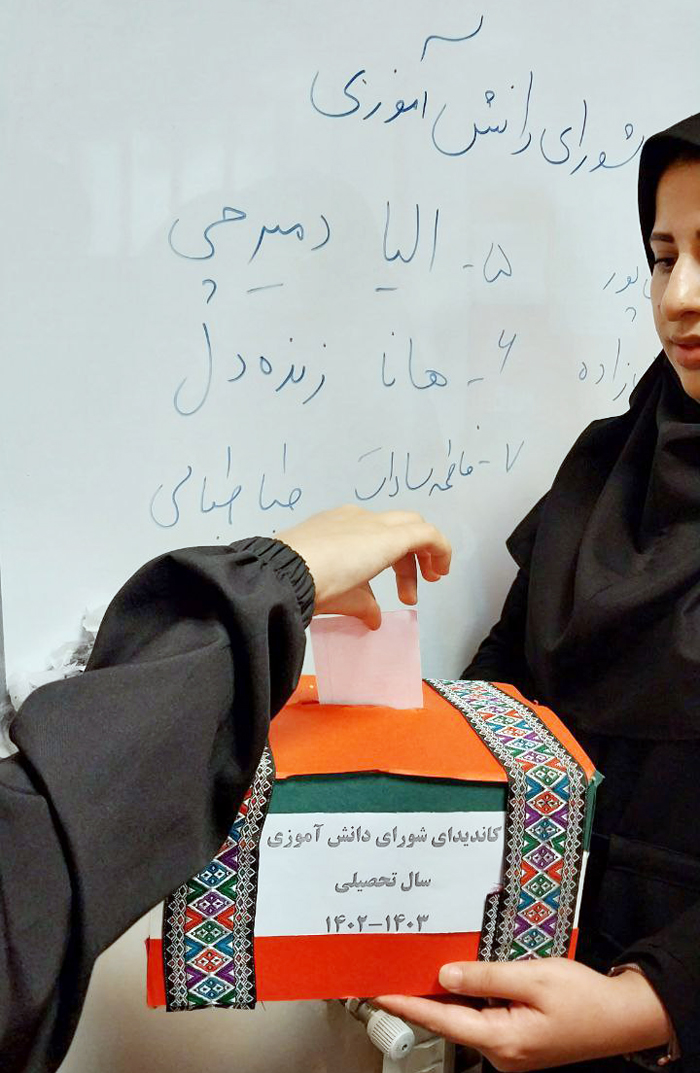 شورای دانش آموزی
۵- الیا دمیرچی
۶- هانا زنده دل
۷- فاطمه سادات طباطبائی
پور
زاده
کاندیدای شورای دانش آموزی
سال تحصیلی
۱۴۰۲-۱۴۰۳